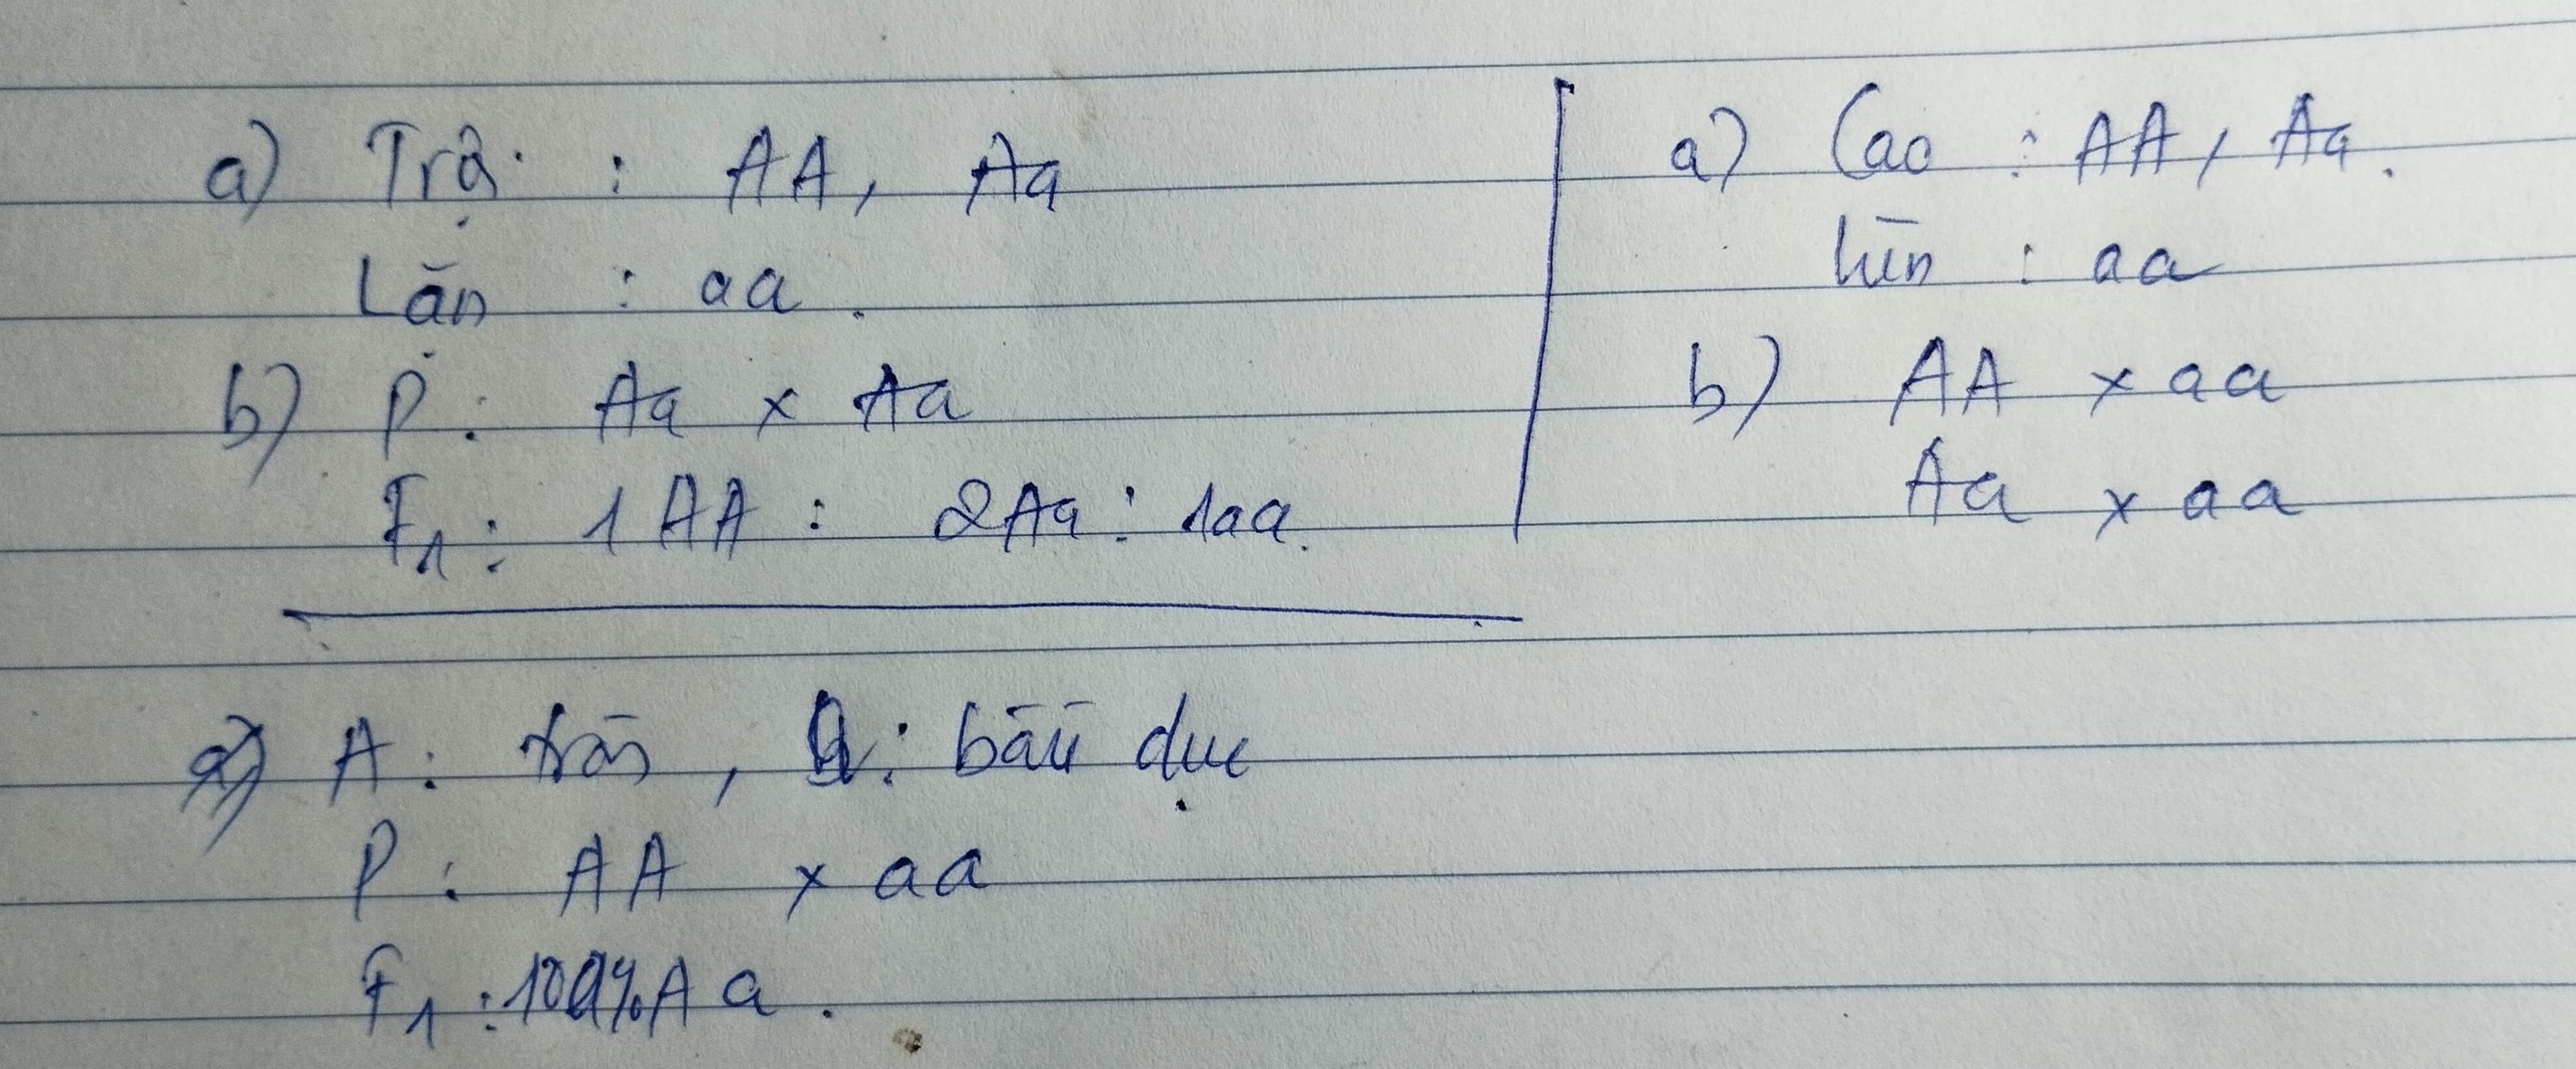 a) Trội : AA, Aa
Lặn : aa.
b) P: Aa x Aa
F1: 1AA : 2Aa : 1aa.
a) Cao : AA, Aa.
lùn : aa
b) AA x aa
Aa x aa
A: tròn, a: bầu dục
P: AA x aa
F1: 100% Aa.